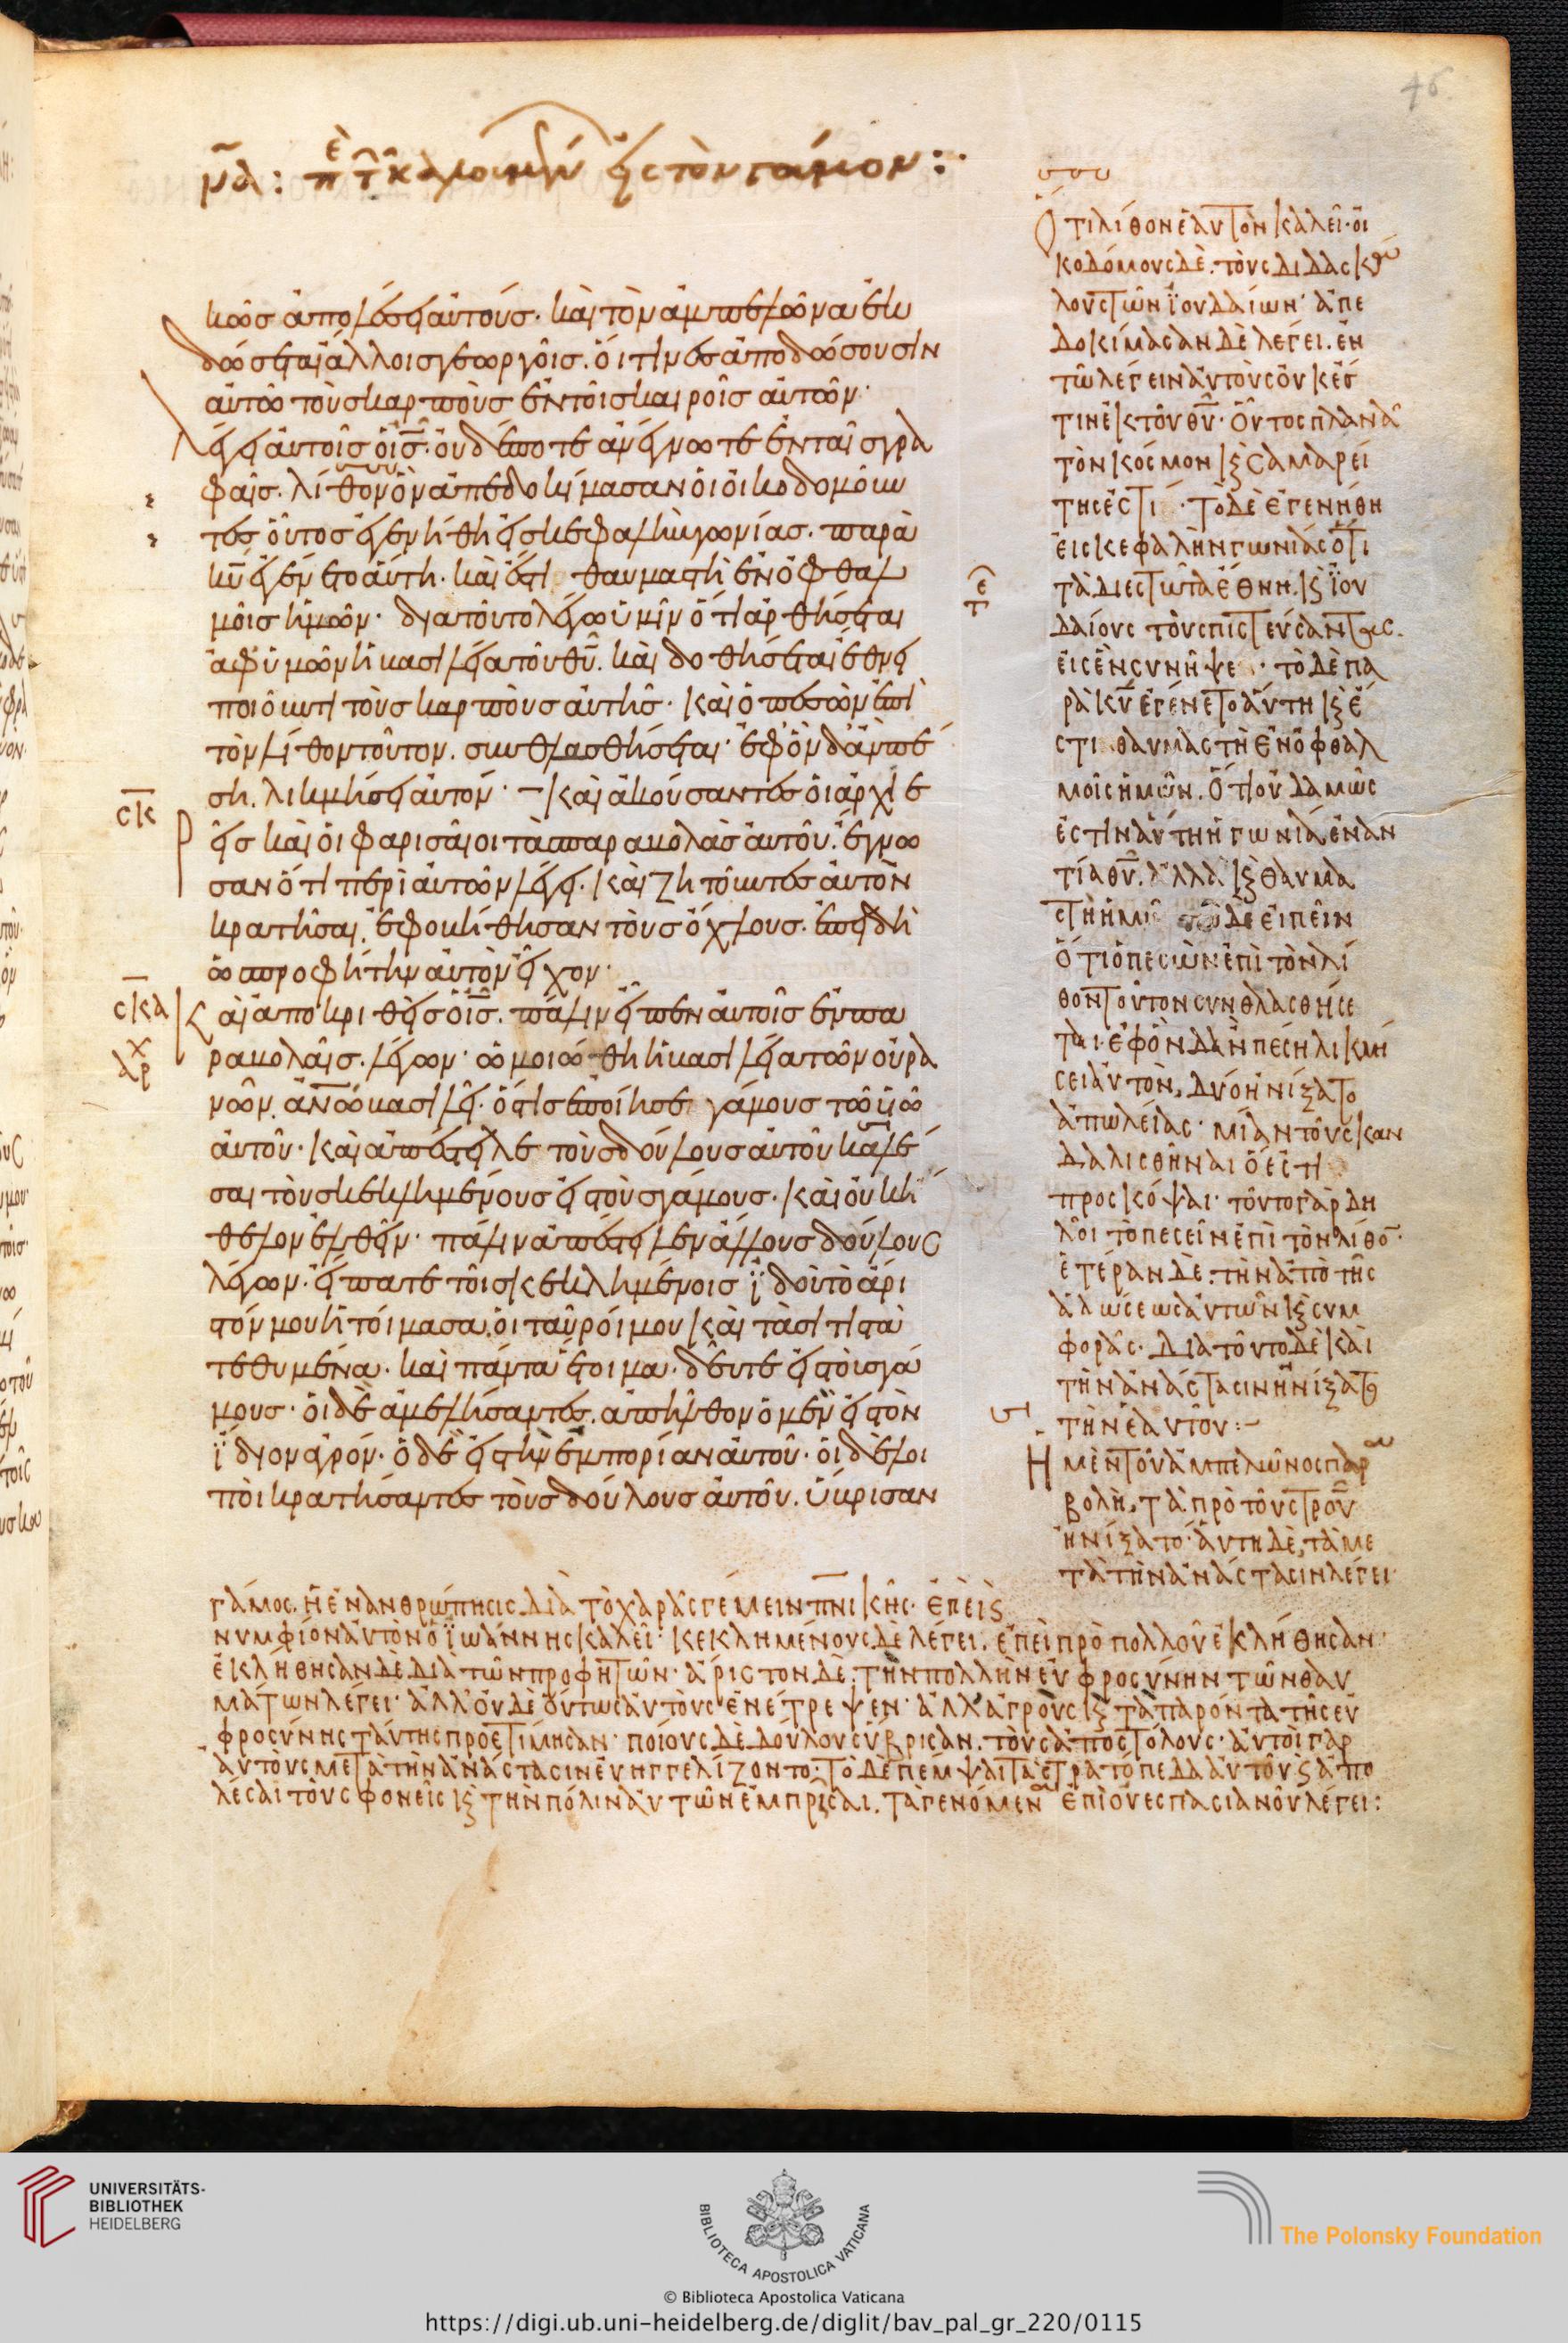 46
να: περὶ τῶν καλουμένων εἰς τὸν γάμον:·
κῶς ἀπολέσει αὐτούς· καὶ τὸν ἀμπελῶνα ἐκ
δώσεται ἄλλοις γεωργοῖς. οἵτινες ἀποδώσουσιν
αὐτῶ τοὺς καρποὺς ἐν τοῖς καιροῖς αὐτῶν·
λέγει αὐτοῖς ὁ ις. οὐδέποτε ἀνέγνωτε ἐν ταῖς γρα
φαῖς. λίθον ὃν ἀπεδοκίμασαν οἱ οἰκοδομοῦν
τες οὗτος ἐγενήθη εἰς κεφαλὴν γωνίας. παρὰ
κυ ἐγένετο αὕτη. καὶ ἔστι θαυμαστὴ ἐν ὀφθαλ
μοῖς ἡμῶν· διατοῦτο λέγω ὑμῖν ὅτι ἀρθήσεται
ἀφ' ὑμῶν ἡ βασιλεία τοῦ θυ. καὶ δοθήσεται ἔθνει
ποιοῦντι τοὺς καρποὺς αὐτῆς· καὶ ὁ πεσὼν ἐπὶ
τὸν λίθον τοῦτον. συνθλασθήσεται· ἐφ' ὃν δ' ἂν πέ
ση. λικμήσει αὐτόν· καὶ ἀκούσαντες οἱ ἀρχιε
σκ
ρεῖς καὶ οἱ φαρισαῖοι τὰς παραβολὰς αὐτοῦ. ἔγνω
σαν ὅτι περὶ αὐτῶν λέγει. καὶ ζητοῦντες αὐτὸν
κρατῆσαι. ἐφοβήθησαν τοὺς ὄχλους. ἐπειδὴ
ὡς προφήτην αὐτὸν εἶχον·
σκα
καὶ ἀποκριθεὶς ὁ ις. πάλιν εἶπεν αὐτοῖς ἐν πα
αρχ
ραβολαῖς. λέγων· ὡμοιώθη ἡ βασιλεία τῶν οὐρα
νῶν ανω βασιλεῖ. ὅστις ἐποίησε γάμους τῶ υἱῶ
αὐτοῦ· καὶ ἀπέστειλε τοὺς δούλους αὐτοῦ καλέ
σαι τοὺς κεκλημένους εἰς τοὺς γάμους. καὶ οὐκ ἤ
θελον ἐλθεῖν· πάλιν ἀπέστειλεν ἄλλους δούλους
λέγων· εἴπατε τοῖς κεκλημένοις ἰδοὺ τὸ ἄρι
στόν μου ἡτοίμασα. οἱ ταῦροί μου καὶ τὰ σιτιστὰ
τεθυμένα. καὶ πάντα ἕτοιμα. δεῦτε εἰς τοὺς γά
μους· οἱ δὲ ἀμελήσαντες. ἀπῆλθον ὁ μὲν εἰς τὸν
ἴδιον ἀγρόν. ὁ δὲ εἰς τὴν ἐμπορίαν αὐτοῦ· οἱ δὲ λοι
ποὶ κρατήσαντες τοὺς δούλους αὐτοῦ. ὕβρισαν
Ὅτι λίθον ἑαυτὸν καλεῖ· οἰ
κοδόμους δὲ. τοὺς διδασκά
λους τῶν ἰουδαίων· ἀπε
δοκίμασαν δὲ λέγει. ἐν
τῶ λέγειν αὐτοὺς οὐκ ἔσ
τιν ἐκ τοῦ θυ. Οὗτος πλανᾶ
τὸν κόσμον κ σαμαρεί
της ἐστί· Τὸ δὲ ἐγενήθη
εἰς κεφαλὴν γωνίας ὅτι
τὰ διεστῶτα ἔθνη. κ ἰου
δαίους τοὺς πιστεύσαντας.
εἰς ἓν συνῆψε· τὸ δὲ πα
ρὰ κυ ἐγένετο αὕτη κ ἔ
στι θαυμαστὴ ἐν ὀφθαλ
μοῖς ἡμῶν. ὅτι οὐδαμῶς
ἐστὶν αὕτη ἡ γωνία ἐναν
τία θυ. ἀλλὰ κ θαυμα
στὴ ἡμῖν τῶ δὲ εἰπεῖν
ὅτι ὁ πεσὼν ἐπὶ τὸν λί
θον τοῦτον συνθλασθήσε
ται. ἐφ' ὃν δ' ἂν πέση λικμή
σει αὐτὸν, δύο ἠνίξατο
ἀπωλείας· μίαν τοῦ σκαν
δαλισθῆναι ὅ ἐστι
προσκόψαι· τοῦτο γὰρ δη
λοῖ τὸ πεσεῖν ἐπὶ τὸν λίθον·
ἑτέραν δὲ. τὴν ἀπὸ τῆς
ἁλώσεως αὐτῶν κ συμ
φορᾶς. διὰ τοῦτο δὲ καὶ
τὴν ἀνάστασιν ἠνίξατο
τὴν ἑαυτοῦ:
Ἡ μὲν τοῦ ἀμπελῶνος παρα
βολὴ, τὰ πρὸ τοῦ σταυροῦ
ἠνίξατο· αὕτη δὲ, τὰ με
τὰ τὴν ἀνάστασιν λέγει·
γάμος. ἡ ἐνανθρώπησις. διὰ τὸ χαρᾶς γέμειν πνικῆς. ἐπεὶ
νυμφίον αὐτὸν ὁ ἰωάννης καλεῖ· κεκλημένους δὲ λέγει. ἐπεὶ πρὸ πολλοῦ ἐκλήθησαν·
ἐκλήθησαν δὲ διὰ τῶν προφητῶν· ἄριστον δὲ. τὴν πολλὴν εὐφροσύνην τῶν θαυ
μάτων λέγει· ἀλλ' οὐδὲ οὕτως αὐτοὺς ἐνέτρεψεν· ἀλλ' ἀγροὺς κ τὰ παρόντα τῆς εὐ
φροσύνης ταύτης προετίμησαν· ποίους δὲ δούλους ὕβρισαν. τοὺς ἀποστόλους· αὐτοὶ γὰρ
αὐτοὺς μετὰ τὴν ἀνάστασιν εὐηγγελίζοντο· Τὸ δὲ πέμψαι τὰ στρατόπεδα αὐτοῦ κ ἀπο
λέσαι τοὺς φονεῖς κ τὴν πόλιν αὐτῶν ἐμπρῆσαι. τὰ γενόμενα ἐπὶ οὐεσπασιανοῦ λέγει:
UNIVERSITÄTS-
BIBLIOTHEK
HEIDELBERG
BIBLIOTECA APOSTOLICA VATICANA
The Polonsky Foundation
© Biblioteca Apostolica Vaticana
https://digi.ub.uni-heidelberg.de/diglit/bav_pal_gr_220/0115